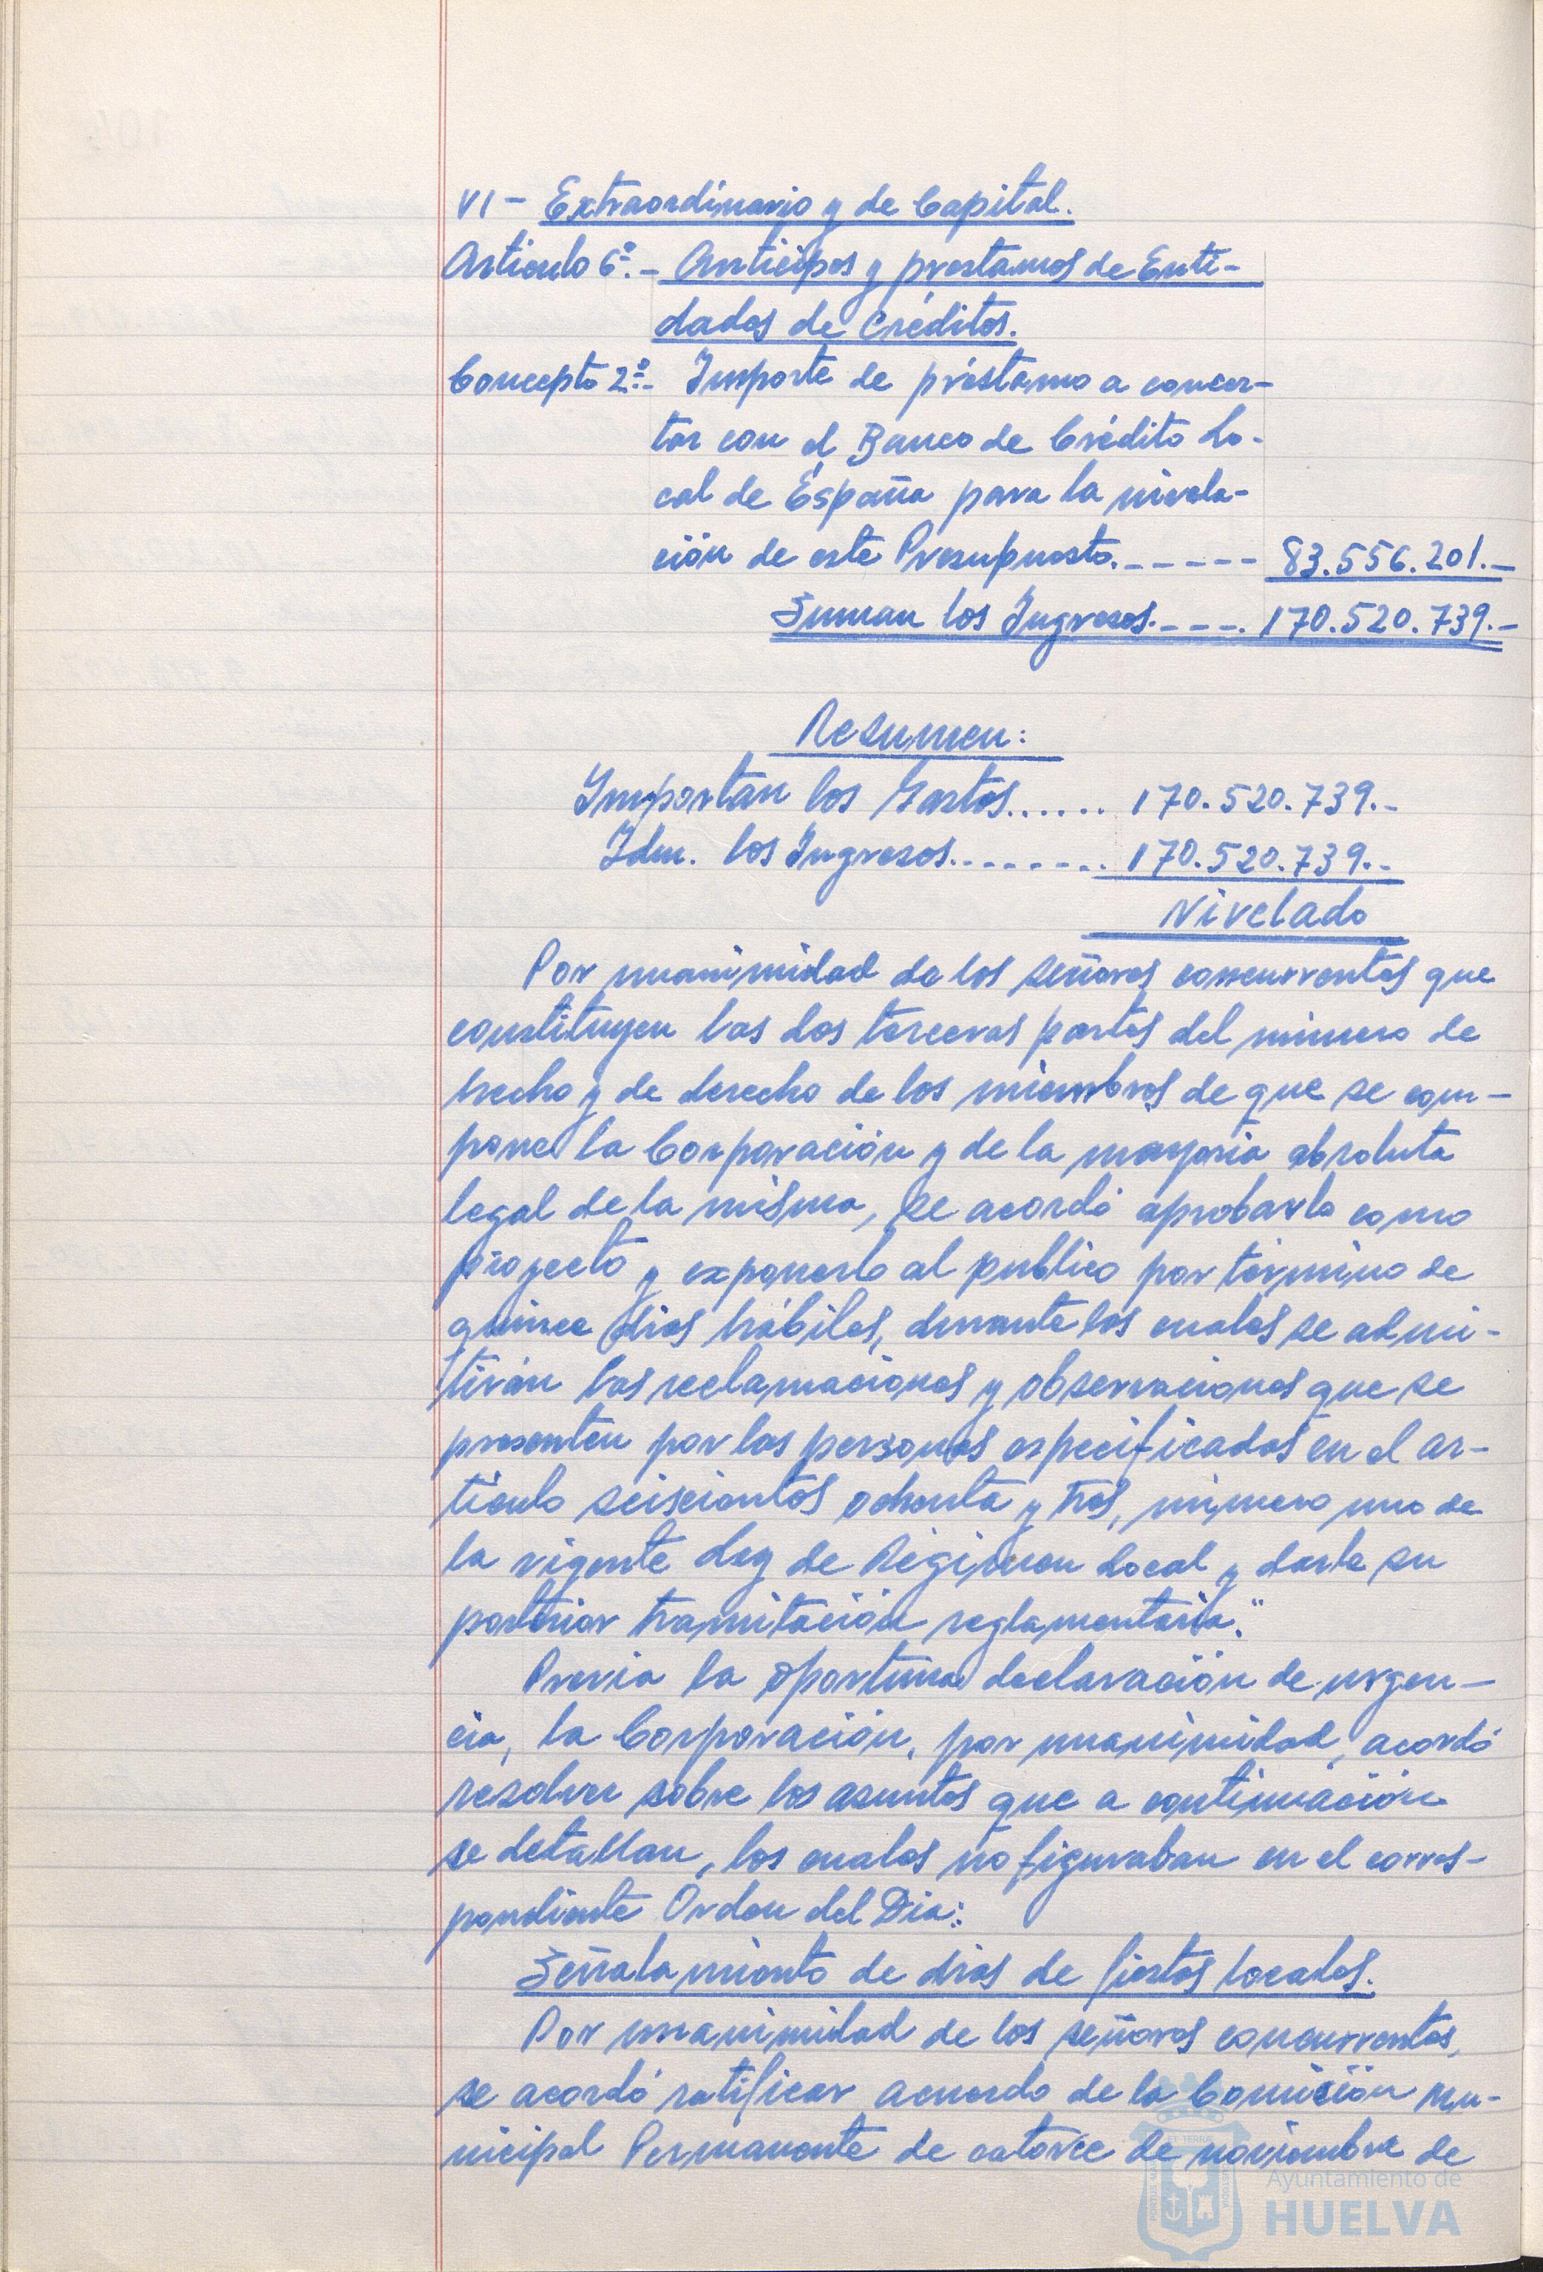 VI - Extraordinario y de Capital.
Articulo 6º.- Anticipos y prestamos de Enti-
dades de Créditos.
Concepto 2º.- Importe de préstamo a concer-
tar con el Banco de Crédito Lo-
cal de España para la nivela-
ción de este Presupuesto.------ 83.556.201.-
Suman los Ingresos.---. 170.520.739.-
Resumen:
Importan los Gastos...... 170.520.739.-
Idm. los Ingresos........ 170.520.739.-
Nivelado
Por unanimidad de los señores concurrentes que
constituyen las dos terceras partes del número de
hecho y de derecho de los miembros de que se com-
pone la Corporación y de la mayoria absoluta
legal de la misma, se acordó aprobarlo como
proyecto y exponerlo al publico por término de
quince dias hábiles, durante los cuales se admi-
tirán las reclamaciones y observaciones que se
presenten por las personas especificadas en el ar-
tículo seiscientos ochenta y tres, número uno de
la vigente Ley de Régimen Local y darle su
posterior tramitación reglamentaria."
Previa la oportuna declaración de urgen-
cia, la Corporación, por unanimidad, acordó
resolver sobre los asuntos que a continuación
se detallan, los cuales no figuraban en el corres-
pondiente Orden del Dia:
Señalamiento de dias de fiestas locales.
Por unanimidad de los señores concurrentes,
se acordó ratificar acuerdo de la Comisión Mu-
nicipal Permanente de catorce de noviembre de
Ayuntamiento de
HUELVA